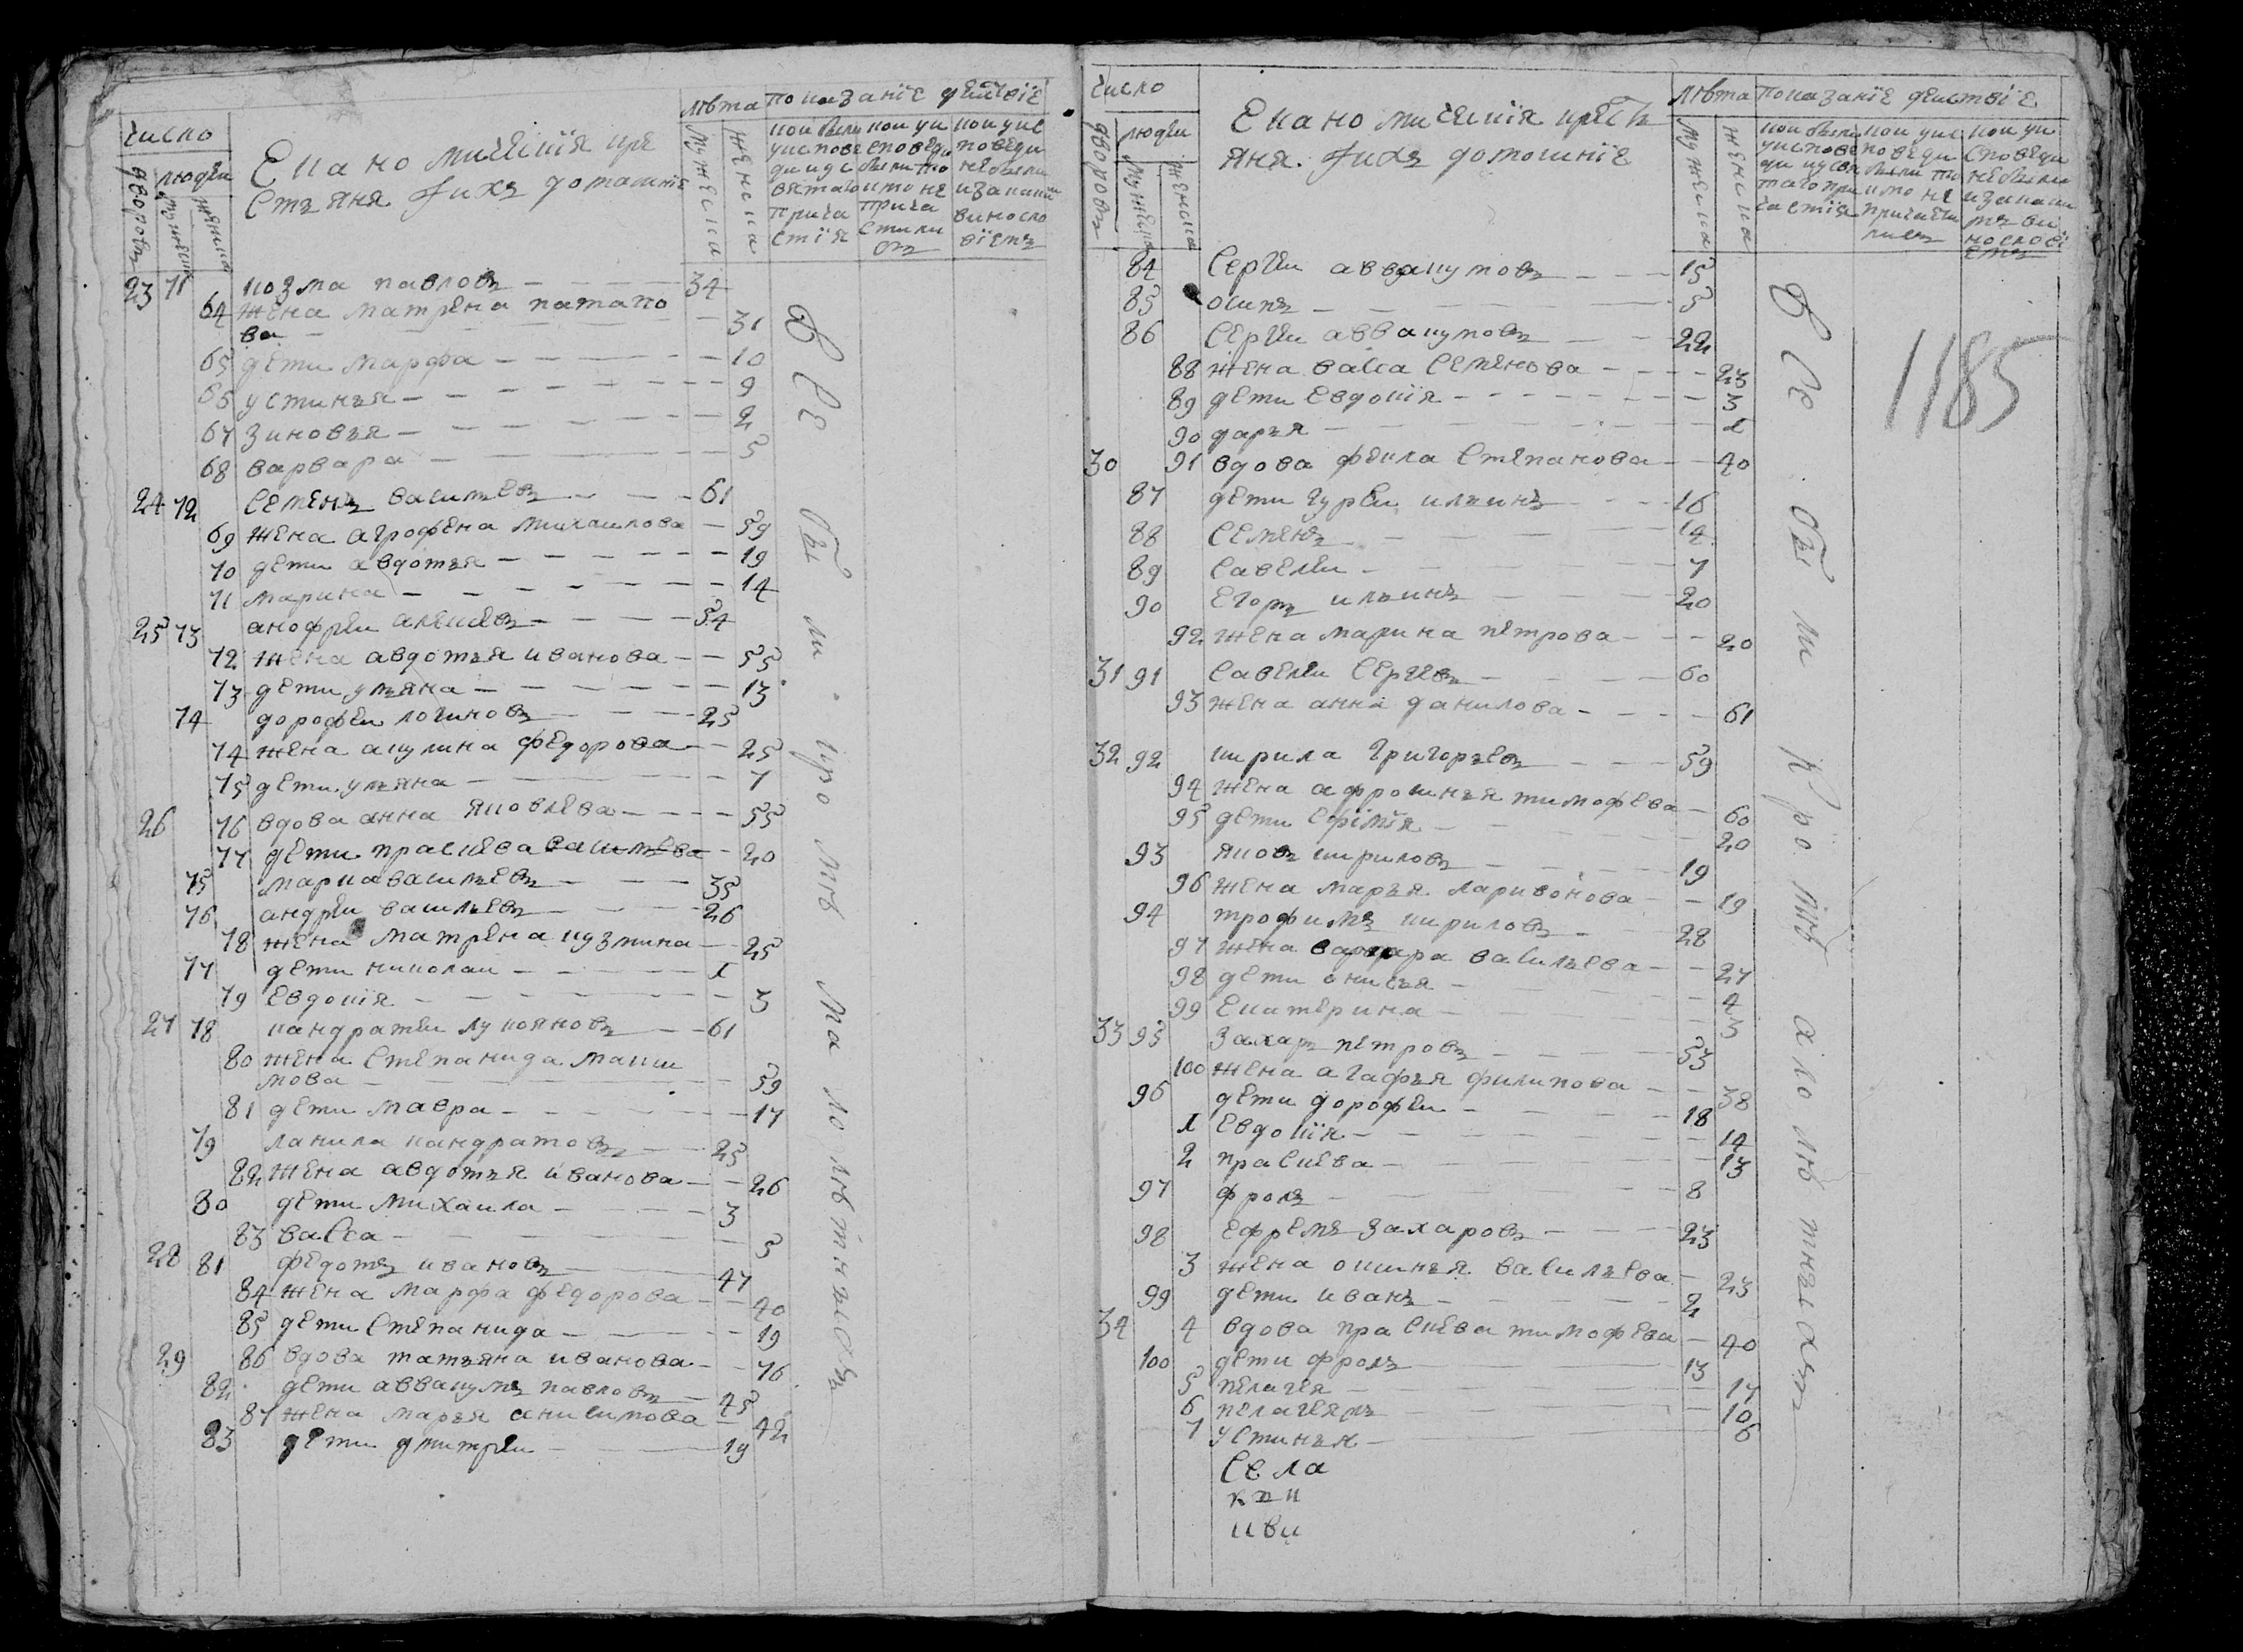 число
лѣта показание действїе
дворовъ
людеи
мужеска
женска
Екано мическїя кре
стъяня и ихъ домашнїе
мужеска
женска
кои были
у испове
ди и у с
вятаго
прича
стїя
кои у и
споведи
были то
кмо не
прича
стили
съ
кои у ис
поведи
не были
и за каки
ми носло
вїемъ
23 71 козма павловъ 34
64 жена матрена патапо
ва 31
65 дети марфа 10
66 устинья 9
67 зиновья 2
68 варвара 5
24 72 семенъ василъевъ 61
69 жена агрофена михаилова 59
70 дети авдотья 19
71 марина 14
25 73 анофреи алексеевъ 54
72 жена авдотъя иванова 55
73 дети улъяна 13
74 дорофеи логиновъ 25
74 жена акулина федорова 25
75 дети улъяна 7
26 76 вдова анна яковлева 55
77 дети праскева василъева 20
75 марка василъевъ 35
76 андреи василъевъ 26
78 жена матрена кузмина 25
77 дети николаи 1
79 евдокїя 3
27 78 кандратеи лукояновъ 61
80 жена степанида макси
мова 59
81 дети мавра 17
79 данила кандратовъ 25
82 жена авдотъя иванова 26
80 дети михаила 3
83 васса 5
28 81 федотъ ивановъ 47
84 жена марфа федорова 40
85 дети степанида 19
29 86 вдова татъяна иванова 76
82 дети аввакумъ павловъ 45
87 жена маръя анисимова 42
83 дети дмитреи 19
все были кромѣ малолѣтныхъ
число
лѣта показанїе действїе
дворовъ
людеи
мужеска
женска
Екано мическїя крестъ
яня и ихъ домошнїе
мужеска
женска
кои были
у испове
ди и у свя
таго при
частїя
кои у ис
поведи
были то
кмо не
причасти
лись
кои у и
споведи
не были
и за каки
мъ ви
нослові
емъ
84 сергеи аввакумовъ 15
85 осипъ 5
86 сергеи аввакумовъ 22
88 жена васса семенова 23
89 дети евдокїя 3
90 даръя 1
30 91 вдова фекла степанова 40
87 дети гуреи илъинъ 16
88 семенъ 14
89 савелеи 7
90 егоръ илъинъ 20
92 жена марина петрова 20
31 91 савелеи сергеевъ 60
93 жена анна данилова 61
32 92 кирила григоръевъ 59
94 жена афросинъя тимофева 60
95 дети ефімїя 20
93 яковъ кириловъ 19
96 жена маръя ларивонова 19
94 трофимъ кириловъ 28
97 жена варвара василъева 27
98 дети анисъя 4
99 екатерина 3
33 95 захаръ петровъ 53
100 жена агафъя филипова 38
96 дети дорофеи 18
1 евдокїя 14
2 праскева 13
97 фролъ 8
98 ефремъ захаровъ 23
3 жена оксинъя василъева 23
99 дети иванъ 2
34 4 вдова праскева тимофева 40
100 дети фролъ 13
5 пелагея 17
6 10
7 устинъя 6
села
все были кромѣ малолѣтныхъ
1185